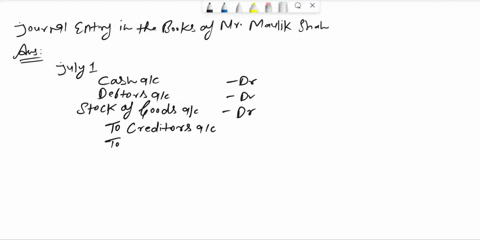 Journal Entry in the Books of Mr. Maulik Shah
Ans:
July 1
Cash a/c - Dr
Debtors a/c - Dr
Stock of Goods a/c - Dr
To Creditors a/c
To